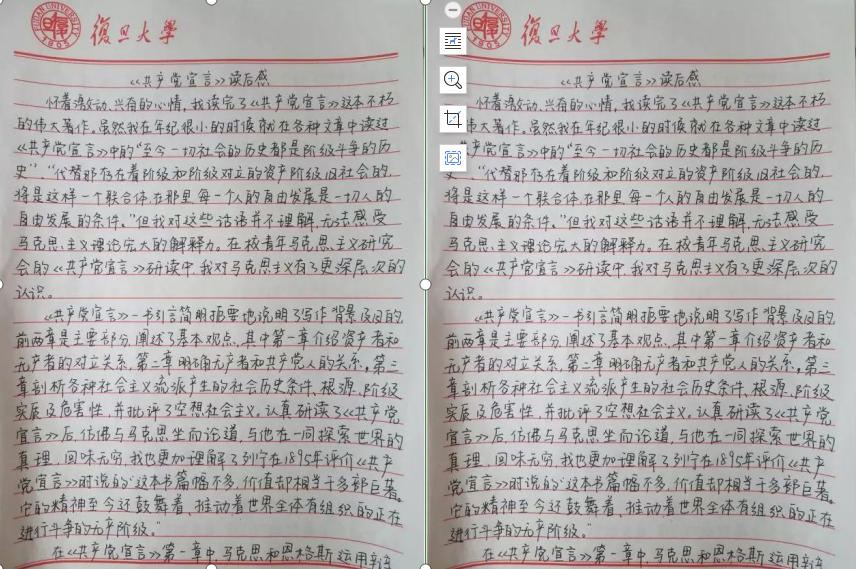 復旦大學
《共产党宣言》读后感
怀着激动、兴奋的心情,我读完了《共产党宣言》这本不朽
的伟大著作。虽然我在年纪很小的时候就在各种文章中读过
《共产党宣言》中的“至今一切社会的历史都是阶级斗争的历
史”,“代替那存在着阶级和阶级对立的资产阶级旧社会的,
将是这样一个联合体,在那里,每一个人的自由发展是一切人的
自由发展的条件。”但我对这些话语并不理解,无法感受
马克思主义理论宏大的解释力。在校青年马克思主义研究
会的《共产党宣言》研读中,我对马克思主义有了更深层次的
认识。
《共产党宣言》一书引言简明扼要地说明了写作背景及目的,
前两章是主要部分,阐述了基本观点,其中第一章介绍资产者和
无产者的对立关系,第二章明确无产者和共产党人的关系,第三
章剖析各种社会主义流派产生的社会历史条件、根源、阶级
实质及危害性,并批评了空想社会主义。认真研读了《共产党
宣言》后,仿佛与马克思坐而论道,与他在一同探索世界的
真理,回味无穷,我也更加理解了列宁在1895年评价《共产
党宣言》时说的“这本书篇幅不多,价值却相当于多部巨著。
它的精神至今还鼓舞着、推动着世界全体有组织的正在
进行斗争的无产阶级。”
在《共产党宣言》第一章中,马克思和恩格斯运用辩
復旦大學
《共产党宣言》读后感
怀着激动、兴奋的心情,我读完了《共产党宣言》这本不朽
伟大著作。虽然我在年纪很小的时候就在各种文章中读过
共产党宣言》中的“至今一切社会的历史都是阶级斗争的历
“代替那存在着阶级和阶级对立的资产阶级旧社会的,
将是这样一个联合体,在那里,每一个人的自由发展是一切人的
自由发展的条件。”但我对这些话语并不理解,无法感受
马克思主义理论宏大的解释力。在校青年马克思主义研究
会的《共产党宣言》研读中,我对马克思主义有了更深层次的
认识。
《共产党宣言》一书引言简明扼要地说明了写作背景及目的,
前两章是主要部分,阐述了基本观点,其中第一章介绍资产者和
无产者的对立关系,第二章明确无产者和共产党人的关系,第三
章剖析各种社会主义流派产生的社会历史条件、根源、阶级
实质及危害性,并批评了空想社会主义。认真研读了《共产党
宣言》后,仿佛与马克思坐而论道,与他在一同探索世界的
真理,回味无穷,我也更加理解了列宁在1895年评价《共产
党宣言》时说的“这本书篇幅不多,价值却相当于多部巨著。
它的精神至今还鼓舞着、推动着世界全体有组织的正在
进行斗争的无产阶级。”
在《共产党宣言》第一章中,马克思和恩格斯运用辩